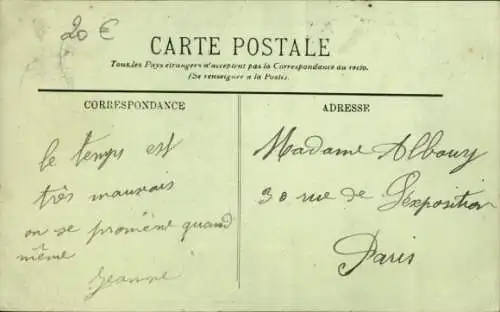 20 €
CARTE POSTALE
Tous les Pays étrangers n'acceptent pas la Correspondance au recto.
(Se renseigner à la Poste).
CORRESPONDANCE
ADRESSE
le temps est
très mauvais
on se promène quand
même
Jeanne
Madame Albouy
30 rue de l'exposition
Paris